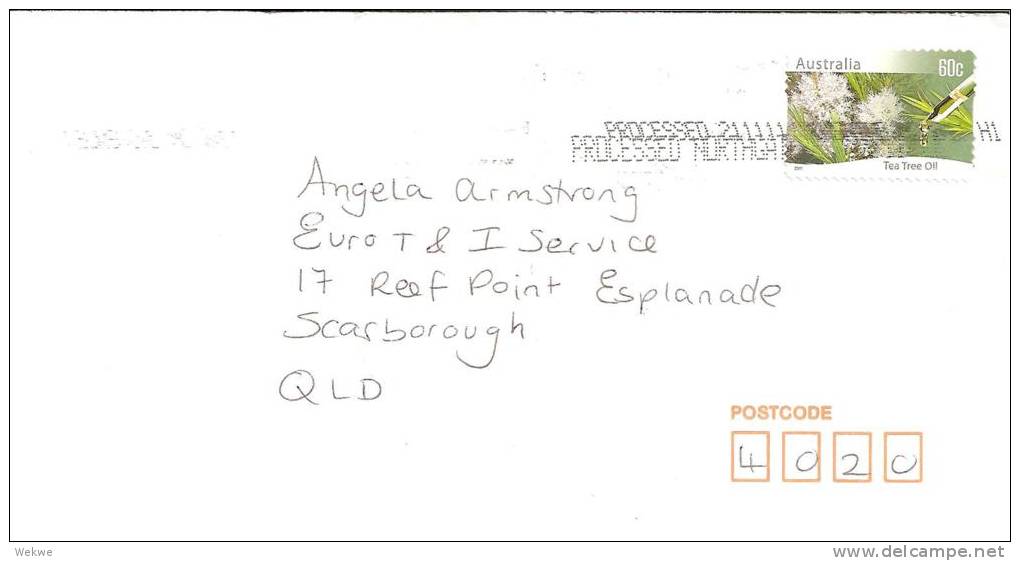 Australia 60c
PROCESSED
PROCESSED
H1
Tea Tree Oil
Angela Armstrong
Euro T & I Service
17 Reef Point Esplanade
Scarborough
QLD
POSTCODE
4 0 2 0
Wekwe
www.delcampe.net